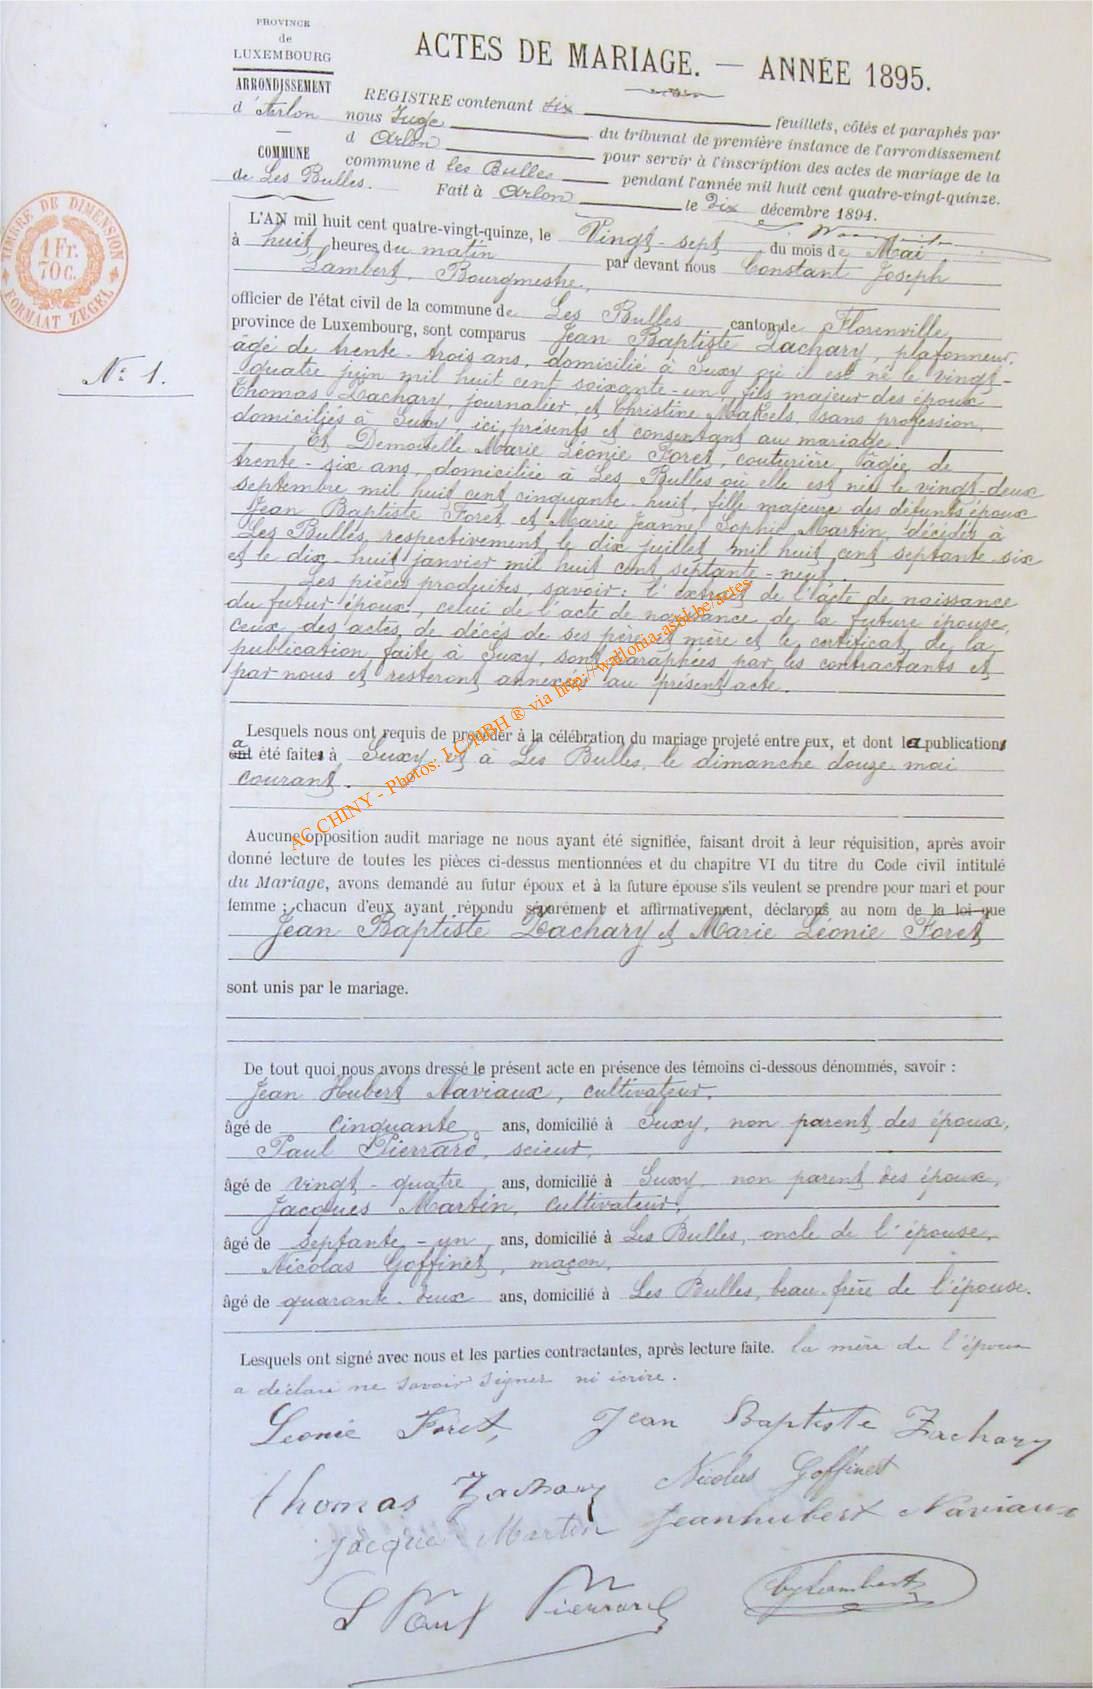 PROVINCE
de
LUXEMBOURG
ARRONDISSEMENT
d'Arlon
COMMUNE
de Les Bulles.
TIMBRE DE DIMENSION
1 Fr.
70 C.
FORMAAT ZEGEL
N° 1.
ACTES DE MARIAGE. — ANNÉE 1895.
REGISTRE contenant dix feuillets, côtés et paraphés par
nous Juge du tribunal de première instance de l'arrondissement
d Arlon pour servir à l'inscription des actes de mariage de la
commune d les Bulles pendant l'année mil huit cent quatre-vingt-quinze.
Fait à Arlon le dix décembre 1894.
L'AN mil huit cent quatre-vingt-quinze, le Vingt-sept du mois de Mai
à huit heures du matin par devant nous Constant Joseph
Lambert, Bourgmestre,
officier de l'état civil de la commune de Les Bulles canton de Florenville,
province de Luxembourg, sont comparus Jean Baptiste Zachary, plafonneur,
âgé de trente-trois ans, domicilié à Suxy où il est né le vingt-
quatre juin mil huit cent soixante-un, fils majeur des époux
Thomas Zachary, journalier, et Christine Makels, sans profession,
domiciliés à Suxy, ici présents et consentant au mariage.
Et Demoiselle Marie Léonie Foret, couturière, âgée de
trente-six ans, domiciliée à Les Bulles où elle est née le vingt-deux
septembre mil huit cent cinquante-huit, fille majeure des défunts époux
Jean Baptiste Foret et Marie Jeanne Sophie Martin, décédés à
Les Bulles, respectivement le dix juillet mil huit cent septante-six
et le dix-huit janvier mil huit cent septante-neuf.
Les pièces produites, savoir: l'extrait de l'acte de naissance
du futur époux, celui de l'acte de naissance de la future épouse,
ceux des actes de décès de ses père et mère et le certificat de la
publication faite à Suxy, sont paraphées par les contractants et
par nous et resteront annexées au présent acte.
AC CHINY - Photos: LC/HBH ® via http://wallonia-asbl.be/actes
Lesquels nous ont requis de procéder à la célébration du mariage projeté entre eux, et dont la publication
a été faite à Suxy et à Les Bulles, le dimanche douze mai
courant.
Aucune opposition audit mariage ne nous ayant été signifiée, faisant droit à leur réquisition, après avoir
donné lecture de toutes les pièces ci-dessus mentionnées et du chapitre VI du titre du Code civil intitulé
du Mariage, avons demandé au futur époux et à la future épouse s'ils veulent se prendre pour mari et pour
femme ; chacun d'eux ayant répondu séparément et affirmativement, déclarons au nom de la loi que
Jean Baptiste Zachary et Marie Léonie Foret
sont unis par le mariage.
De tout quoi nous avons dressé le présent acte en présence des témoins ci-dessous dénommés, savoir :
Jean Hubert Naviaux, cultivateur,
âgé de cinquante ans, domicilié à Suxy, non parent des époux,
Paul Pierrard, scieur,
âgé de vingt-quatre ans, domicilié à Suxy, non parent des époux,
Jacques Martin, cultivateur,
âgé de septante-un ans, domicilié à Les Bulles, oncle de l'épouse,
Nicolas Goffinet, maçon,
âgé de quarante-deux ans, domicilié à Les Bulles, beau-frère de l'épouse.
Lesquels ont signé avec nous et les parties contractantes, après lecture faite. la mère de l'époux
a déclaré ne savoir signer ni écrire.
Léonie Foret, Jean Baptiste Zachary
Thomas Zachary Nicolas Goffinet
Jacque Martin Jeanhubert Naviaux
Paul Pierrard Lambert